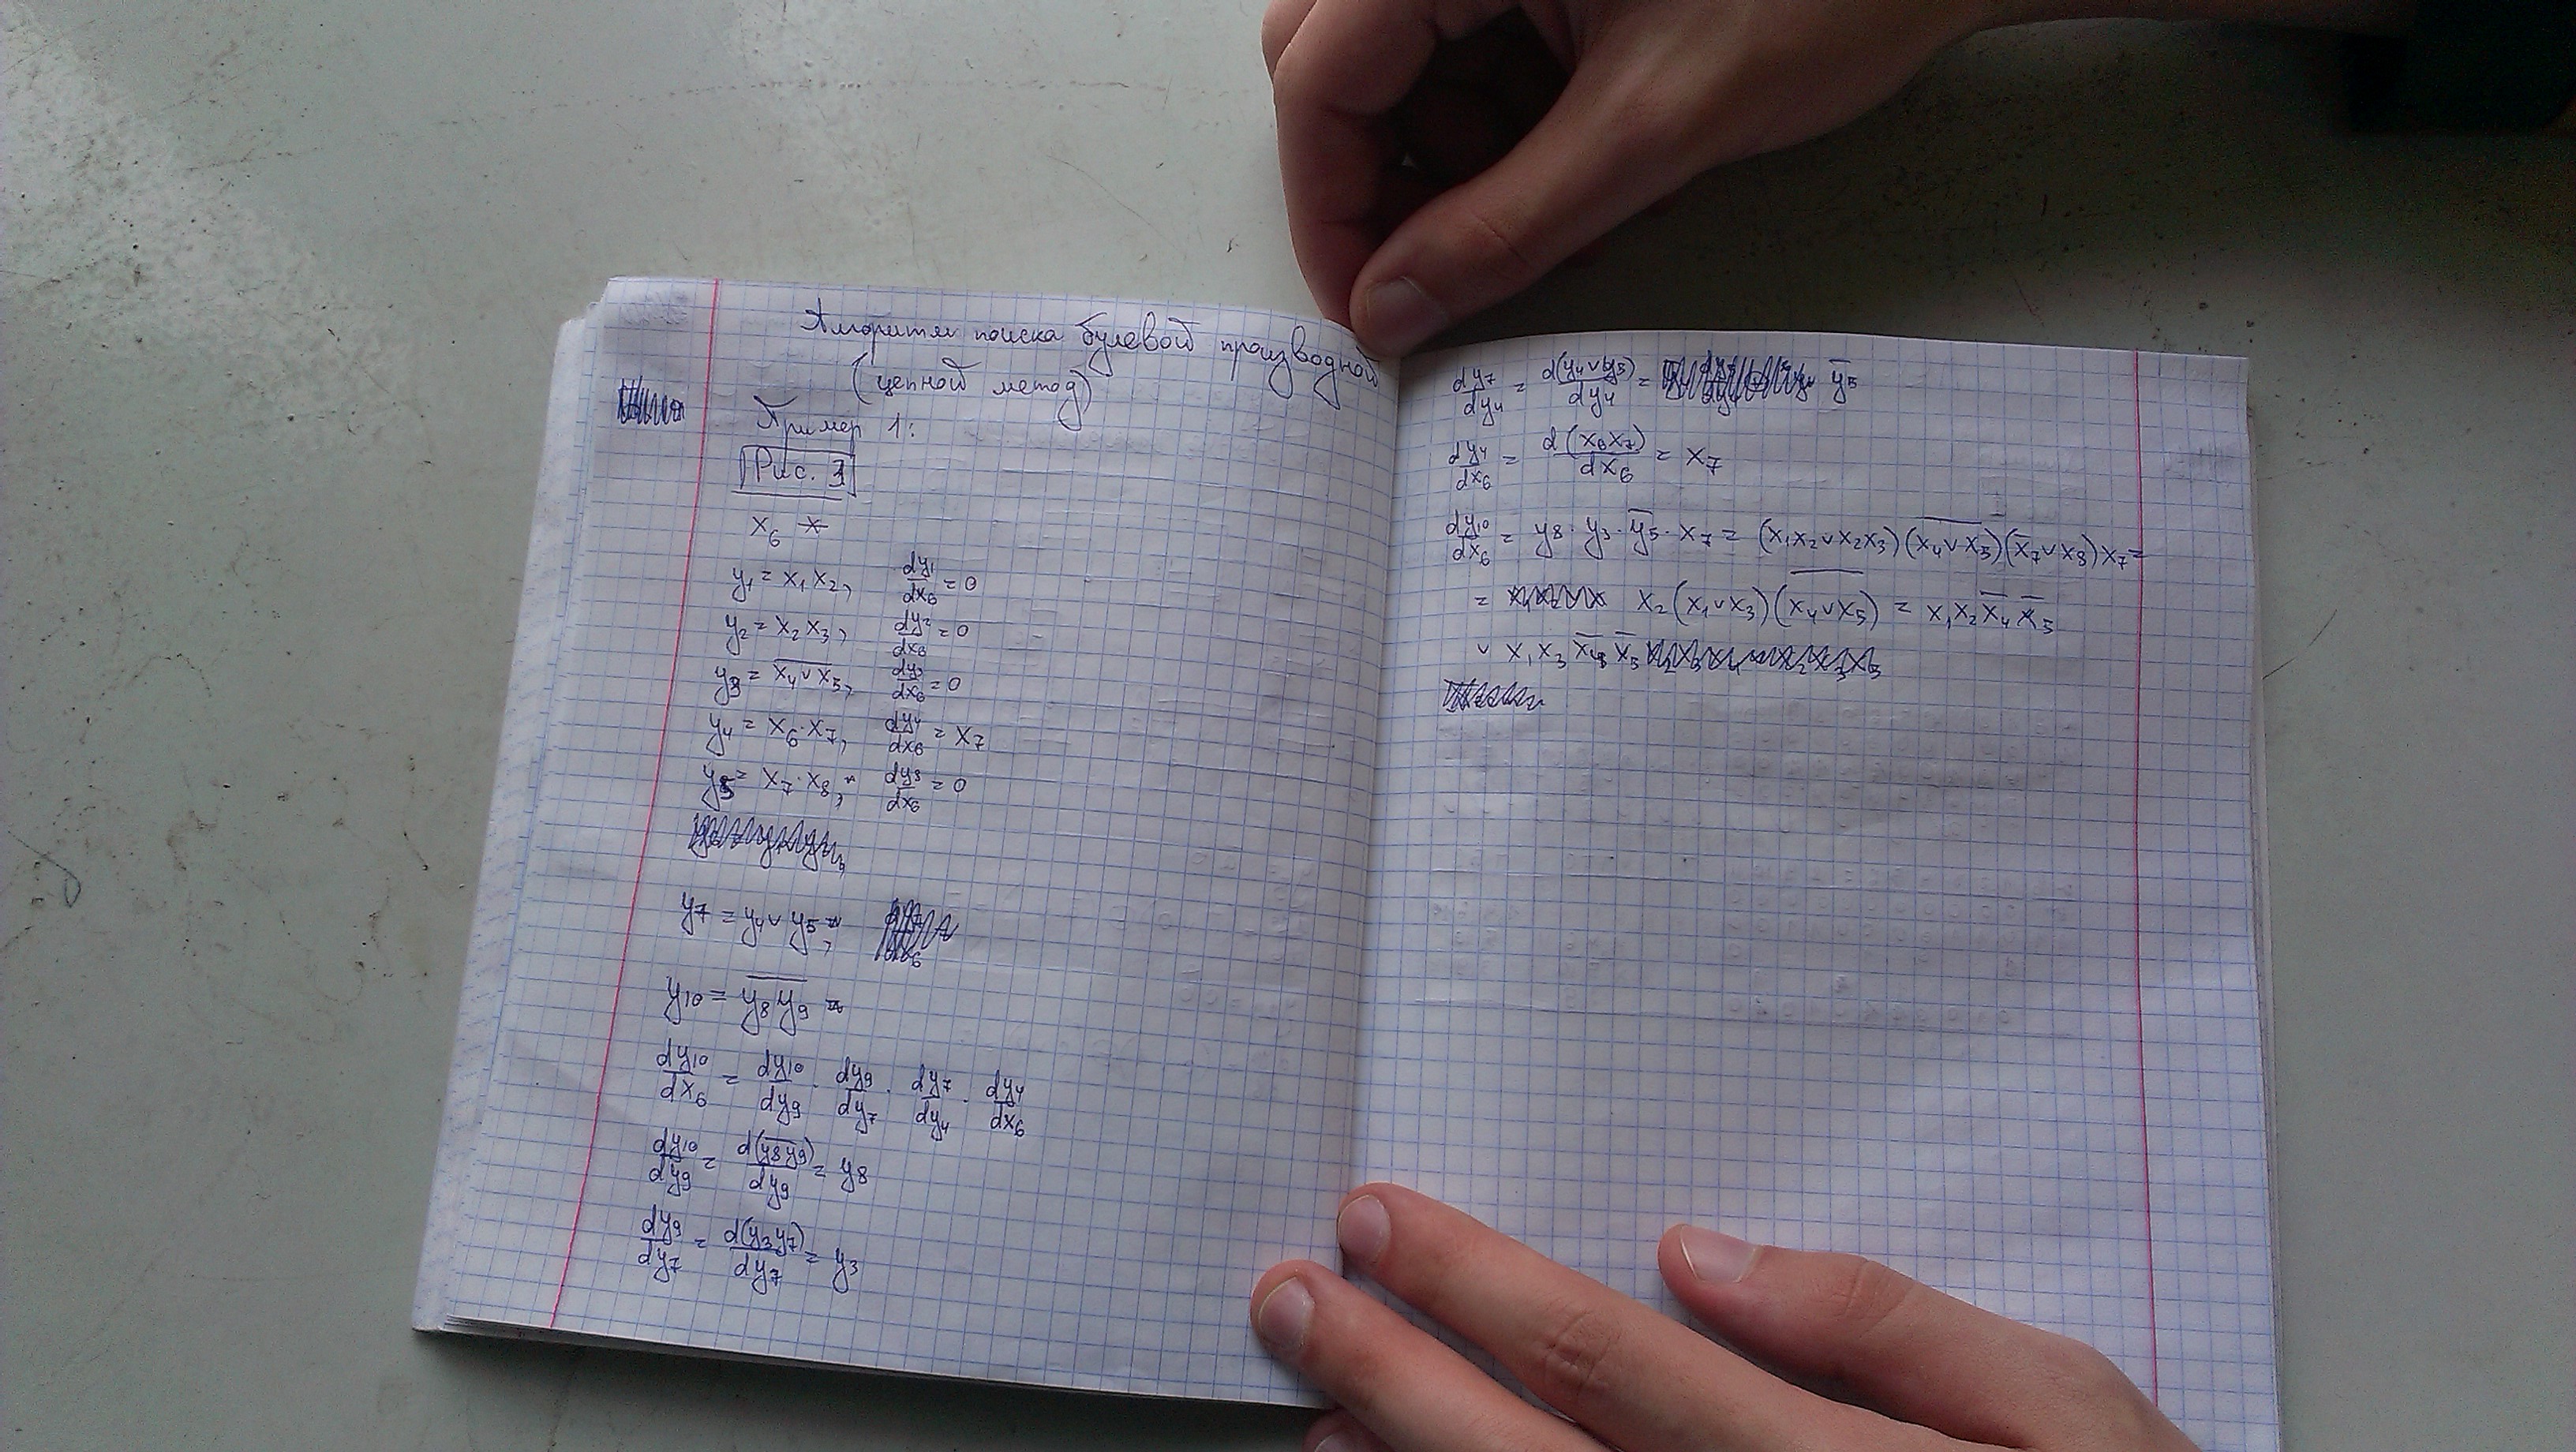 Алгоритм поиска булевой производной
(цепной метод)
Пример 1:
Рис. 1
x₆
y₁ = x₁x₂, dy₁/dx₆ = 0
y₂ = x₂x₃, dy₂/dx₆ = 0
y₃ = x̅₄̅ ̅v̅ ̅x̅₅, dy₃/dx₆ = 0
y₄ = x₆·x₇, dy₄/dx₆ = x₇
y₅ = x₇·x₈, dy₅/dx₆ = 0
y₇ = y₄ v y₅,
y₁₀ = y̅₈̅y̅₉
dy₁₀/dx₆ = dy₁₀/dy₉ · dy₉/dy₇ · dy₇/dy₄ · dy₄/dx₆
dy₁₀/dy₉ = d(y̅₈̅y̅₉)/dy₉ = y₈
dy₉/dy₇ = d(y₃y₇)/dy₇ = y₃
dy₇/dy₄ = d(y₄ v y₅)/dy₄ = y̅₅
dy₄/dx₆ = d(x₆x₇)/dx₆ = x₇
dy₁₀/dx₆ = y₈·y₃·y̅₅·x₇ = (x₁x₂ v x₂x₃)(x̅₄̅ ̅v̅ ̅x̅₅)(x̅₇ v x₈)x₇ =
= x₂(x₁ v x₃)(x̅₄̅ ̅v̅ ̅x̅₅) = x₁x₂x̅₄x̅₅
v x₁x₃x̅₄x̅₅